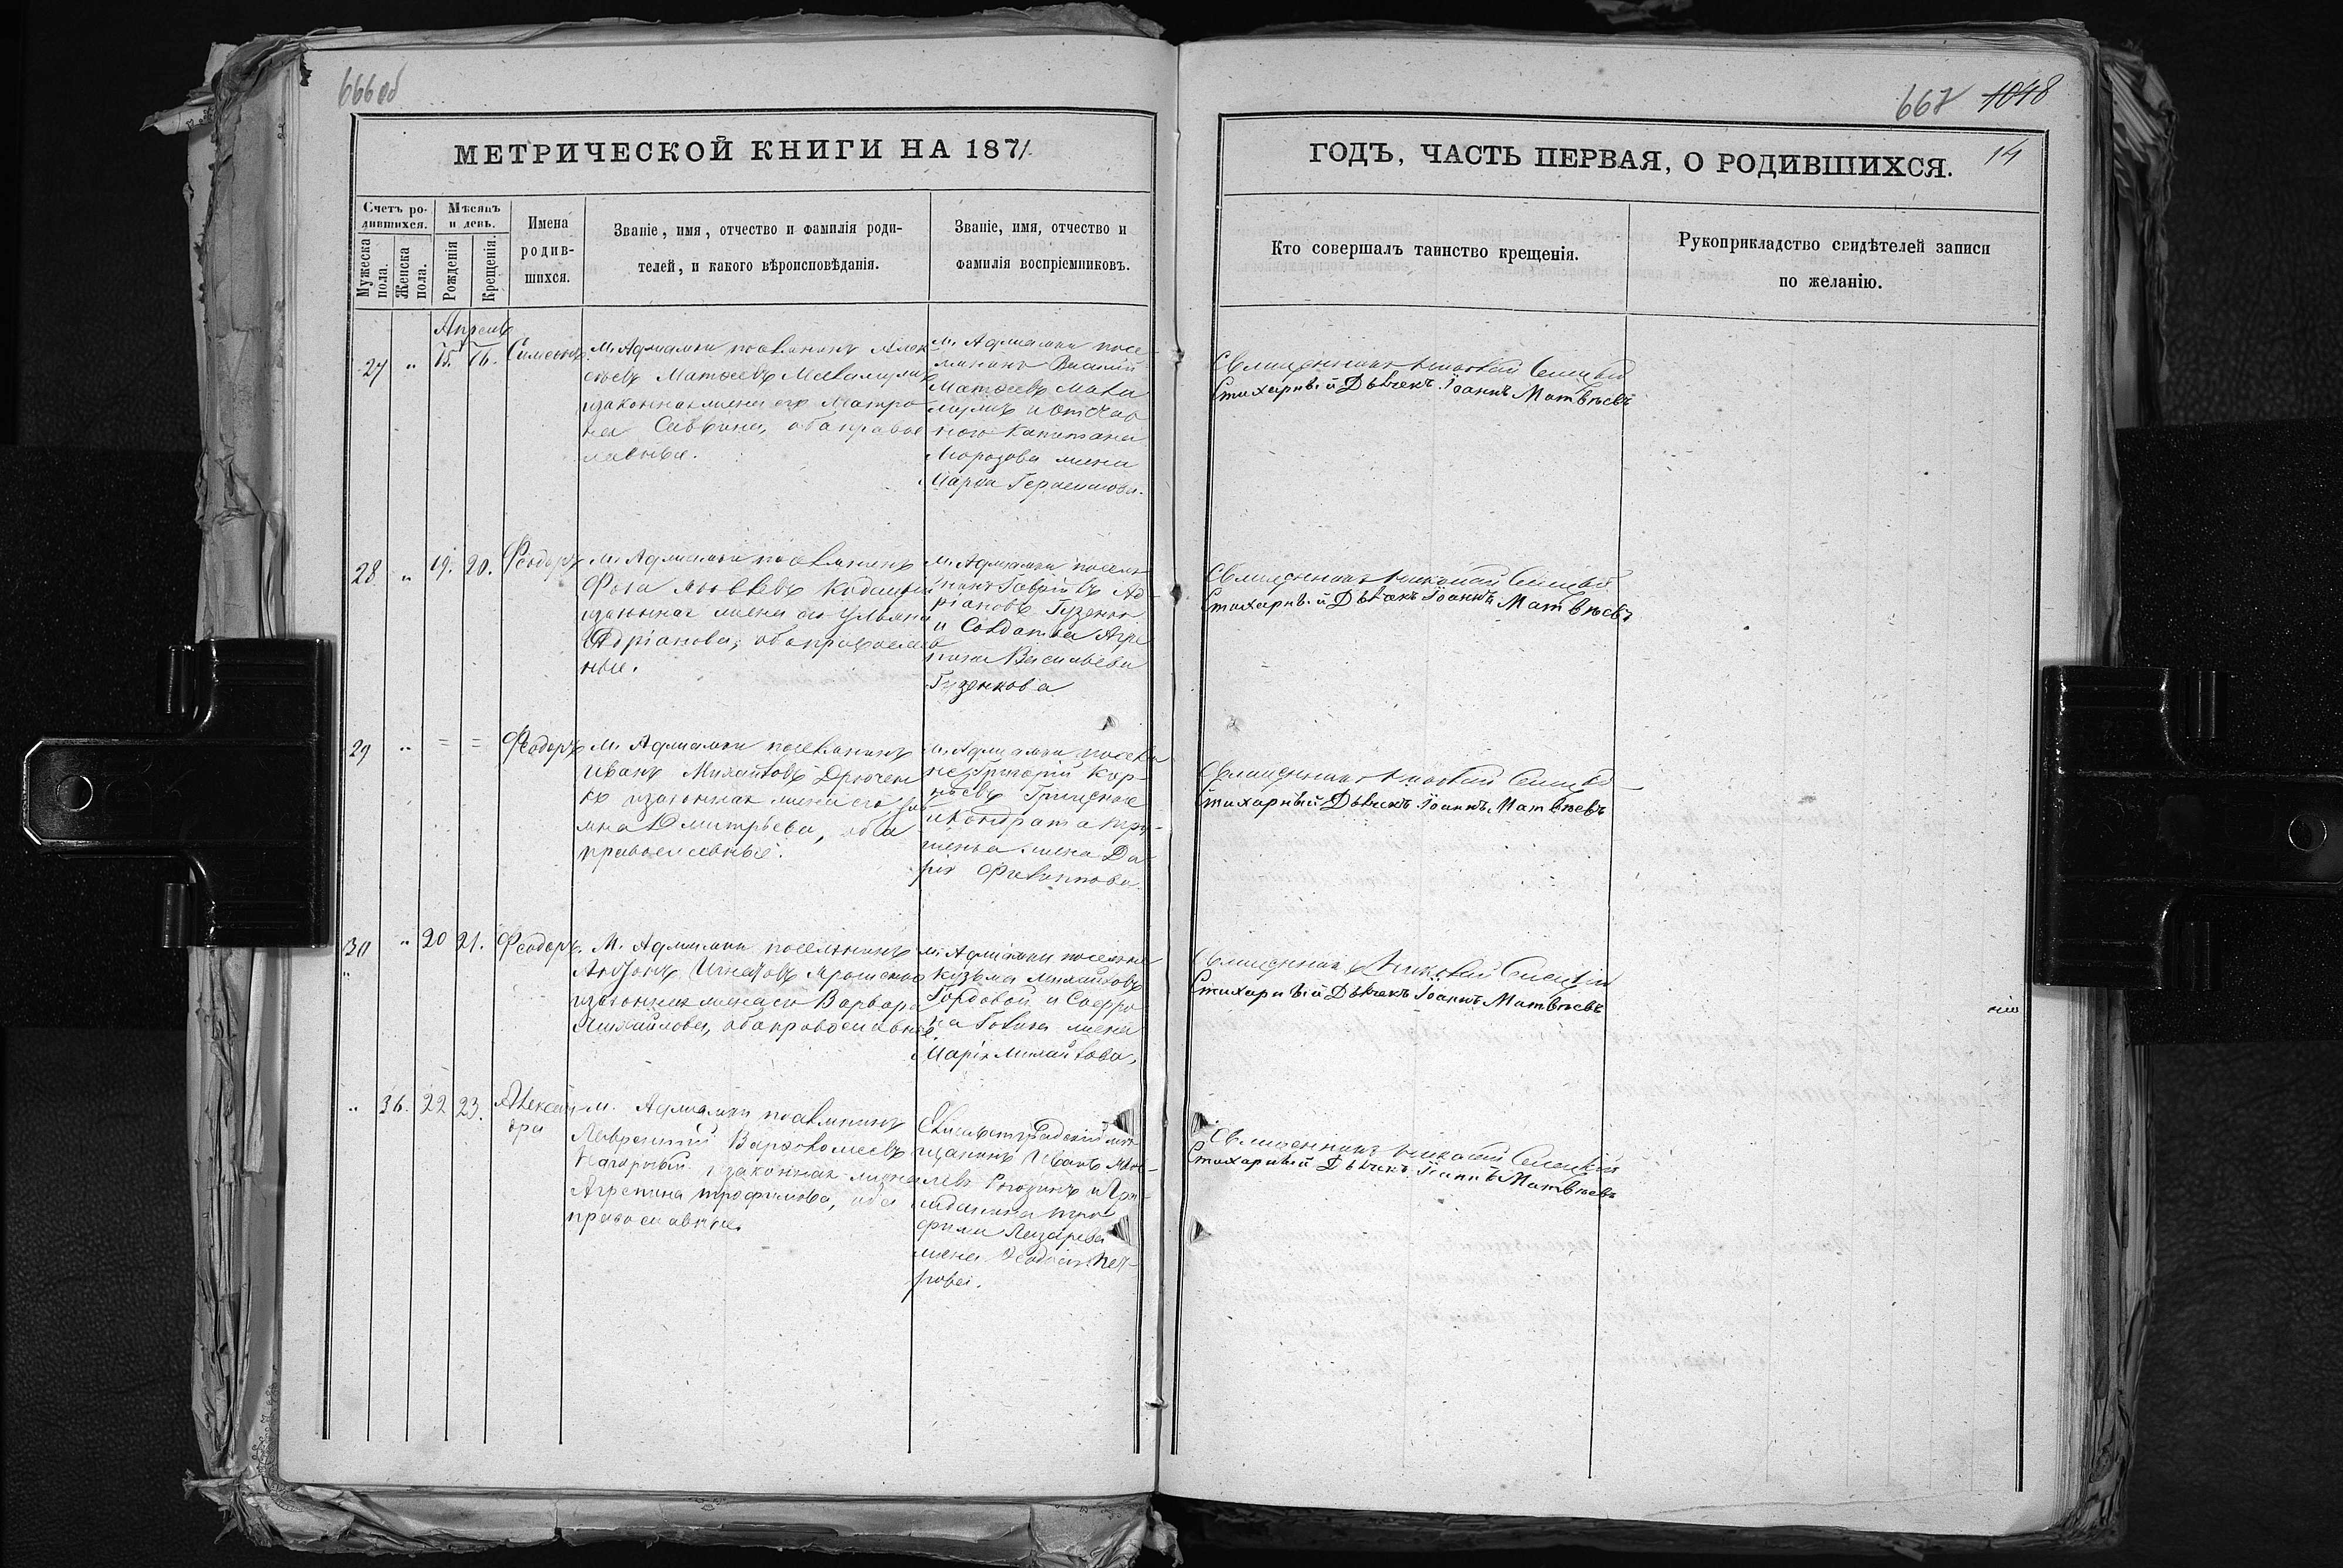 666 об
667 1048
МЕТРИЧЕСКОЙ КНИГИ НА 1871
ГОДЪ, ЧАСТЬ ПЕРВАЯ, О РОДИВШИХСЯ. 14
Счетъ родившихся.
Мужеска пола.
Женска пола.
Мѣсяцъ и день.
Рожденія
Крещенія.
Имена
родив-
шихся.
Званіе, имя, отчество и фамилія роди-
телей, и какого вѣроисповѣданія.
Званіе, имя, отчество и
фамилія воспріемниковъ.
Кто совершалъ таинство крещенія.
Рукоприкладство свидѣтелей записи
по желанію.
Апрель
27 " 15. 16. Симеонъ
М. Аджамки поселянинъ Алек
сѣевъ Матѳеевъ
и законная жена его Матро
на Саввина, оба правос
лавные.
м. Аджамки посе-
лянинъ Василій
Матѳеевъ
и Отстав
ного Капитана
Морозова жена
Марѳа Герасимова.
Священникъ Николай
Стихарный Дьячекъ Іоаннъ Матвѣевъ
28 " 19. 20. Ѳеодоръ
М. Аджамки поселянинъ
Фока
и законная жена его Ульяна
Адріанова, оба православ
ные.
м. Аджамки поселя
нинъ Гавріилъ Ад-
ріановъ Гузенко
и Солдатка Агри
пина Васильева
Гузенкова
Священникъ Николай
Стихарный Дьячекъ Іоаннъ Матвѣевъ
29 " = = Ѳеодоръ
М. Аджамки поселянинъ
Иванъ Михайловъ Дрючен
ко и законная жена его Уль
яна Дмитріева, оба
православные.
м. Аджамки поселя
не Григорій Кор-
нѣевъ Грищенко
и Кондрата
жена Да
рія Филиппова.
Священникъ Николай
Стихарный Дьячекъ Іоаннъ Матвѣевъ
30 " 20 21. Ѳеодоръ.
М. Аджамки поселянинъ
Антонъ Игнатовъ Ярошенко
и законная жена его Варвара
Михайлова, оба православные
м. Аджамки поселяне
Козьма Михайловъ
Гордовой и Софро
на жена
Марія Михайлова,
Священникъ Николай
Стихарный Дьячекъ Іоаннъ Матвѣевъ
" 36. 22 23. Алексан
дра
М. Аджамки поселянинъ
Лаврентій Варѳоломеевъ
Нагорный и законная жена
Агрепина Трофимова, оба
православные
Елисаветградскій мѣ
щанинъ Иванъ
Рогозинъ и Гра
жданина Тро
фима Лазарева
жена Ѳеодосія Пет-
рова.
Священникъ Николай
Стихарный Дьячекъ Іоаннъ Матвѣевъ